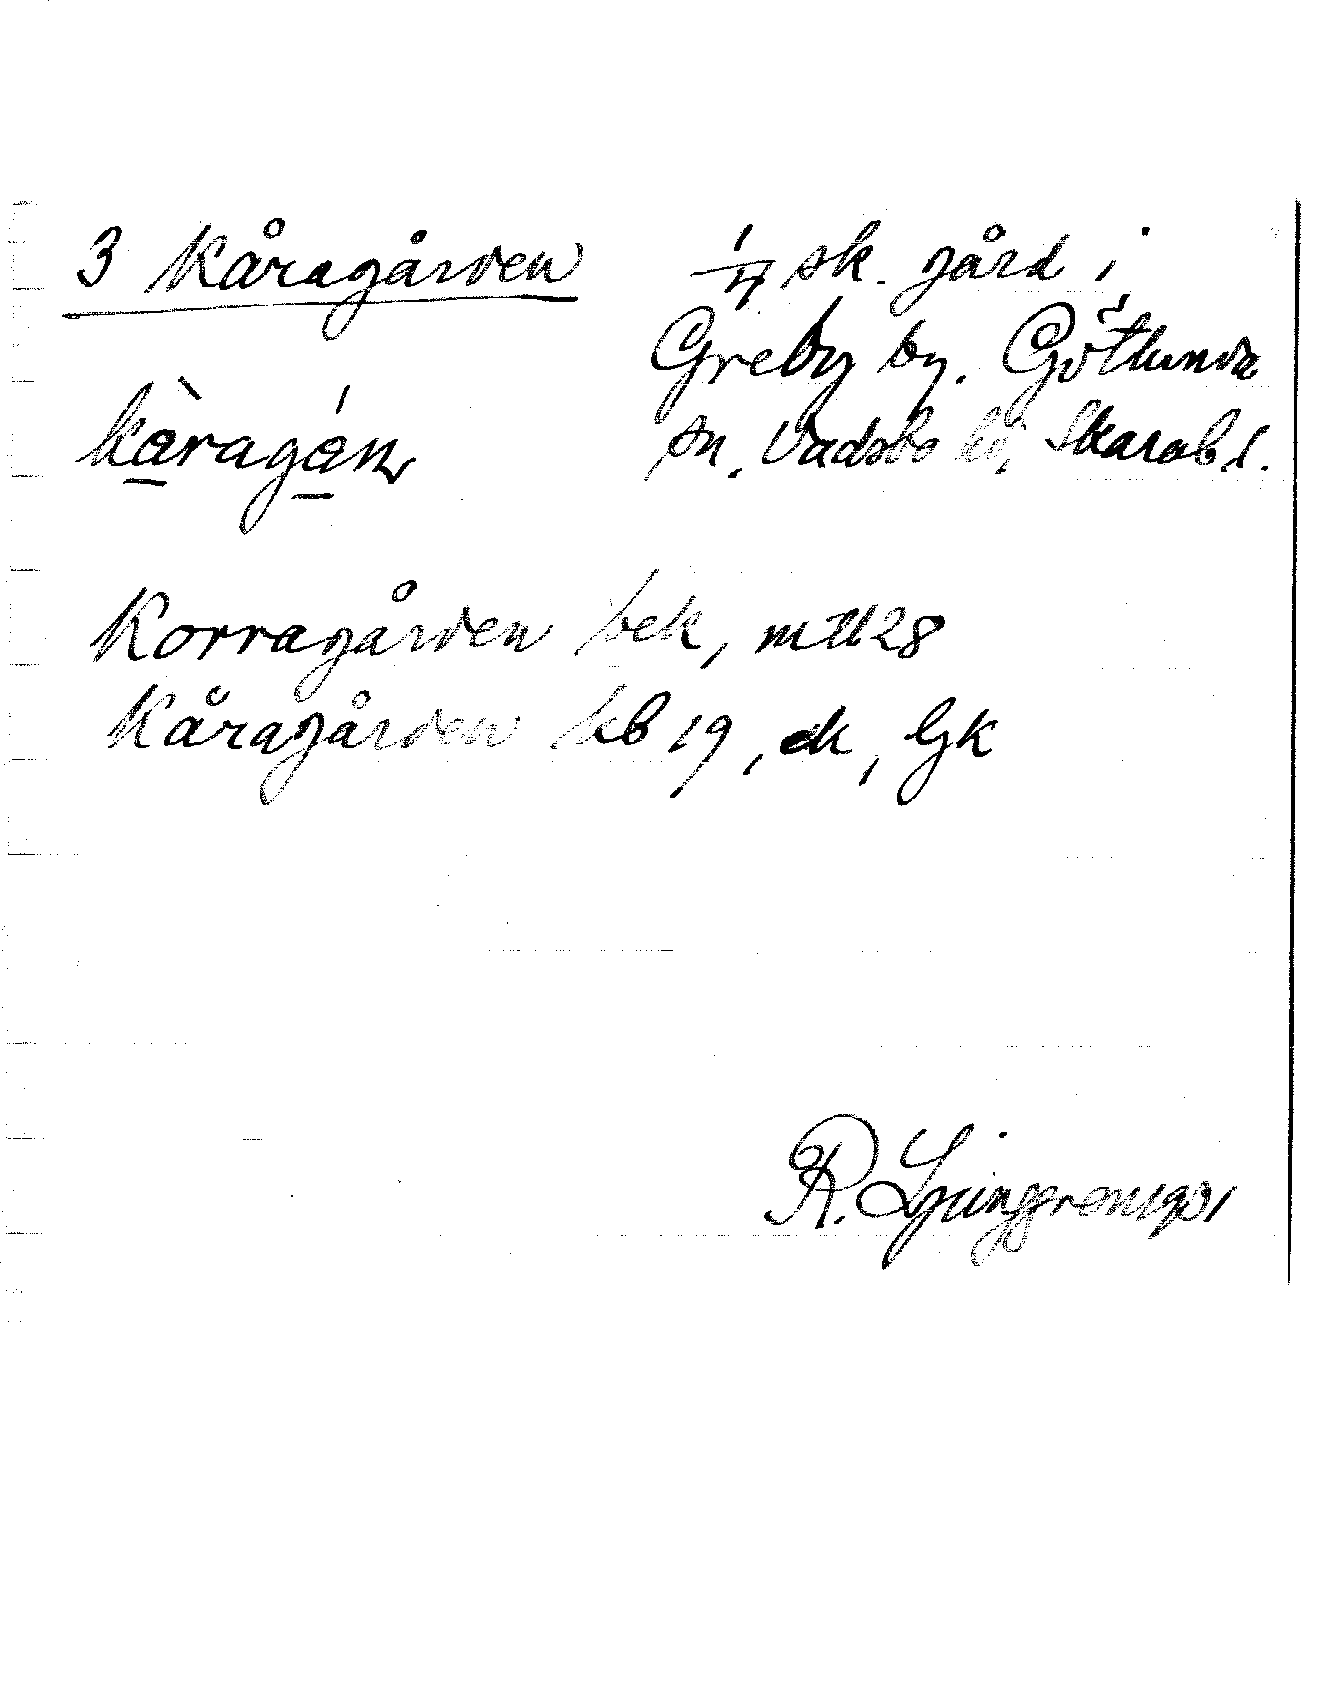 3 Kåragården
1/4 sk. gård i
Greby by. Götlunda
sn. Vadsbo hd, Skarab l.
kàragán
Korragården bek, mtl 28
Kåragården kb 19, ek, Gk
R. Ljunggren 1931